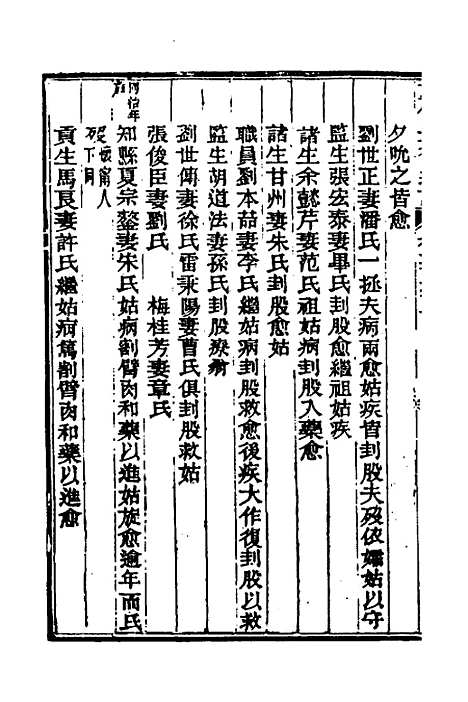 夕吮之皆愈
劉世正妻潘氏一拯夫病兩愈姑疾皆刲股夫歿依孀姑以守
監生張玄泰妻畢氏刲股愈繼祖姑疾
諸生余懿芹妻范氏祖姑病刲股入藥愈
諸生甘州妻朱氏刲股愈姑
職員劉本喆妻李氏繼姑病刲股救愈後疾大作復刲股以救
監生胡道法妻孫氏刲股療
劉世傳妻徐氏雷秉陽妻曹氏俱刲股救姑
張俊臣妻劉氏 梅桂芳妻章氏
知縣夏宗鏊妻朱氏姑病割臂肉和藥以進姑旋愈逾年而氏
歿懷甯人
下同
貢生馬良妻許氏繼姑病篤割臂肉和藥以進愈